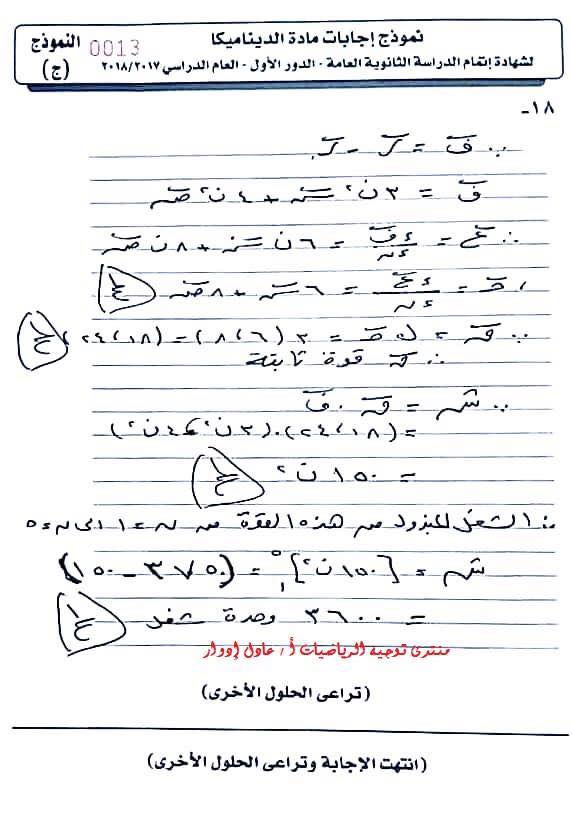 نموذج إجابات مادة الديناميكا
0013 النموذج
لشهادة إتمام الدراسة الثانوية العامة - الدور الأول - العام الدراسي ٢٠١٨/٢٠١٧
(ج)
١٨-
∵ ف = ر - ر.
ف = ٣ ن٢ س + ٤ ن٢ ص
∴ ع = ءف/ءن = ٦ ن س + ٨ ن ص
، جـ = ءع/ءن = ٦ س + ٨ ص
∵ ق = ك جـ = ٣ (٦ ، ٨) = (١٨ ، ٢٤)
∴ ق قوة ثابتة
∵ ش = ق . ف
= (١٨ ، ٢٤) . (٣ ن٢ ، ٤ ن٢)
= ١٥٠ ن٢
∴ الشغل المبذول من هذه القوة من ن = ١ إلى ن = ٥
ش = [١٥٠ ن٢]٥١ = (٣٧٥٠ - ١٥٠)
= ٣٦٠٠ وحدة شغل
منتدى توجيه الرياضيات أ / عادل إدوار
(تراعى الحلول الأخرى)
(انتهت الإجابة وتراعى الحلول الأخرى)